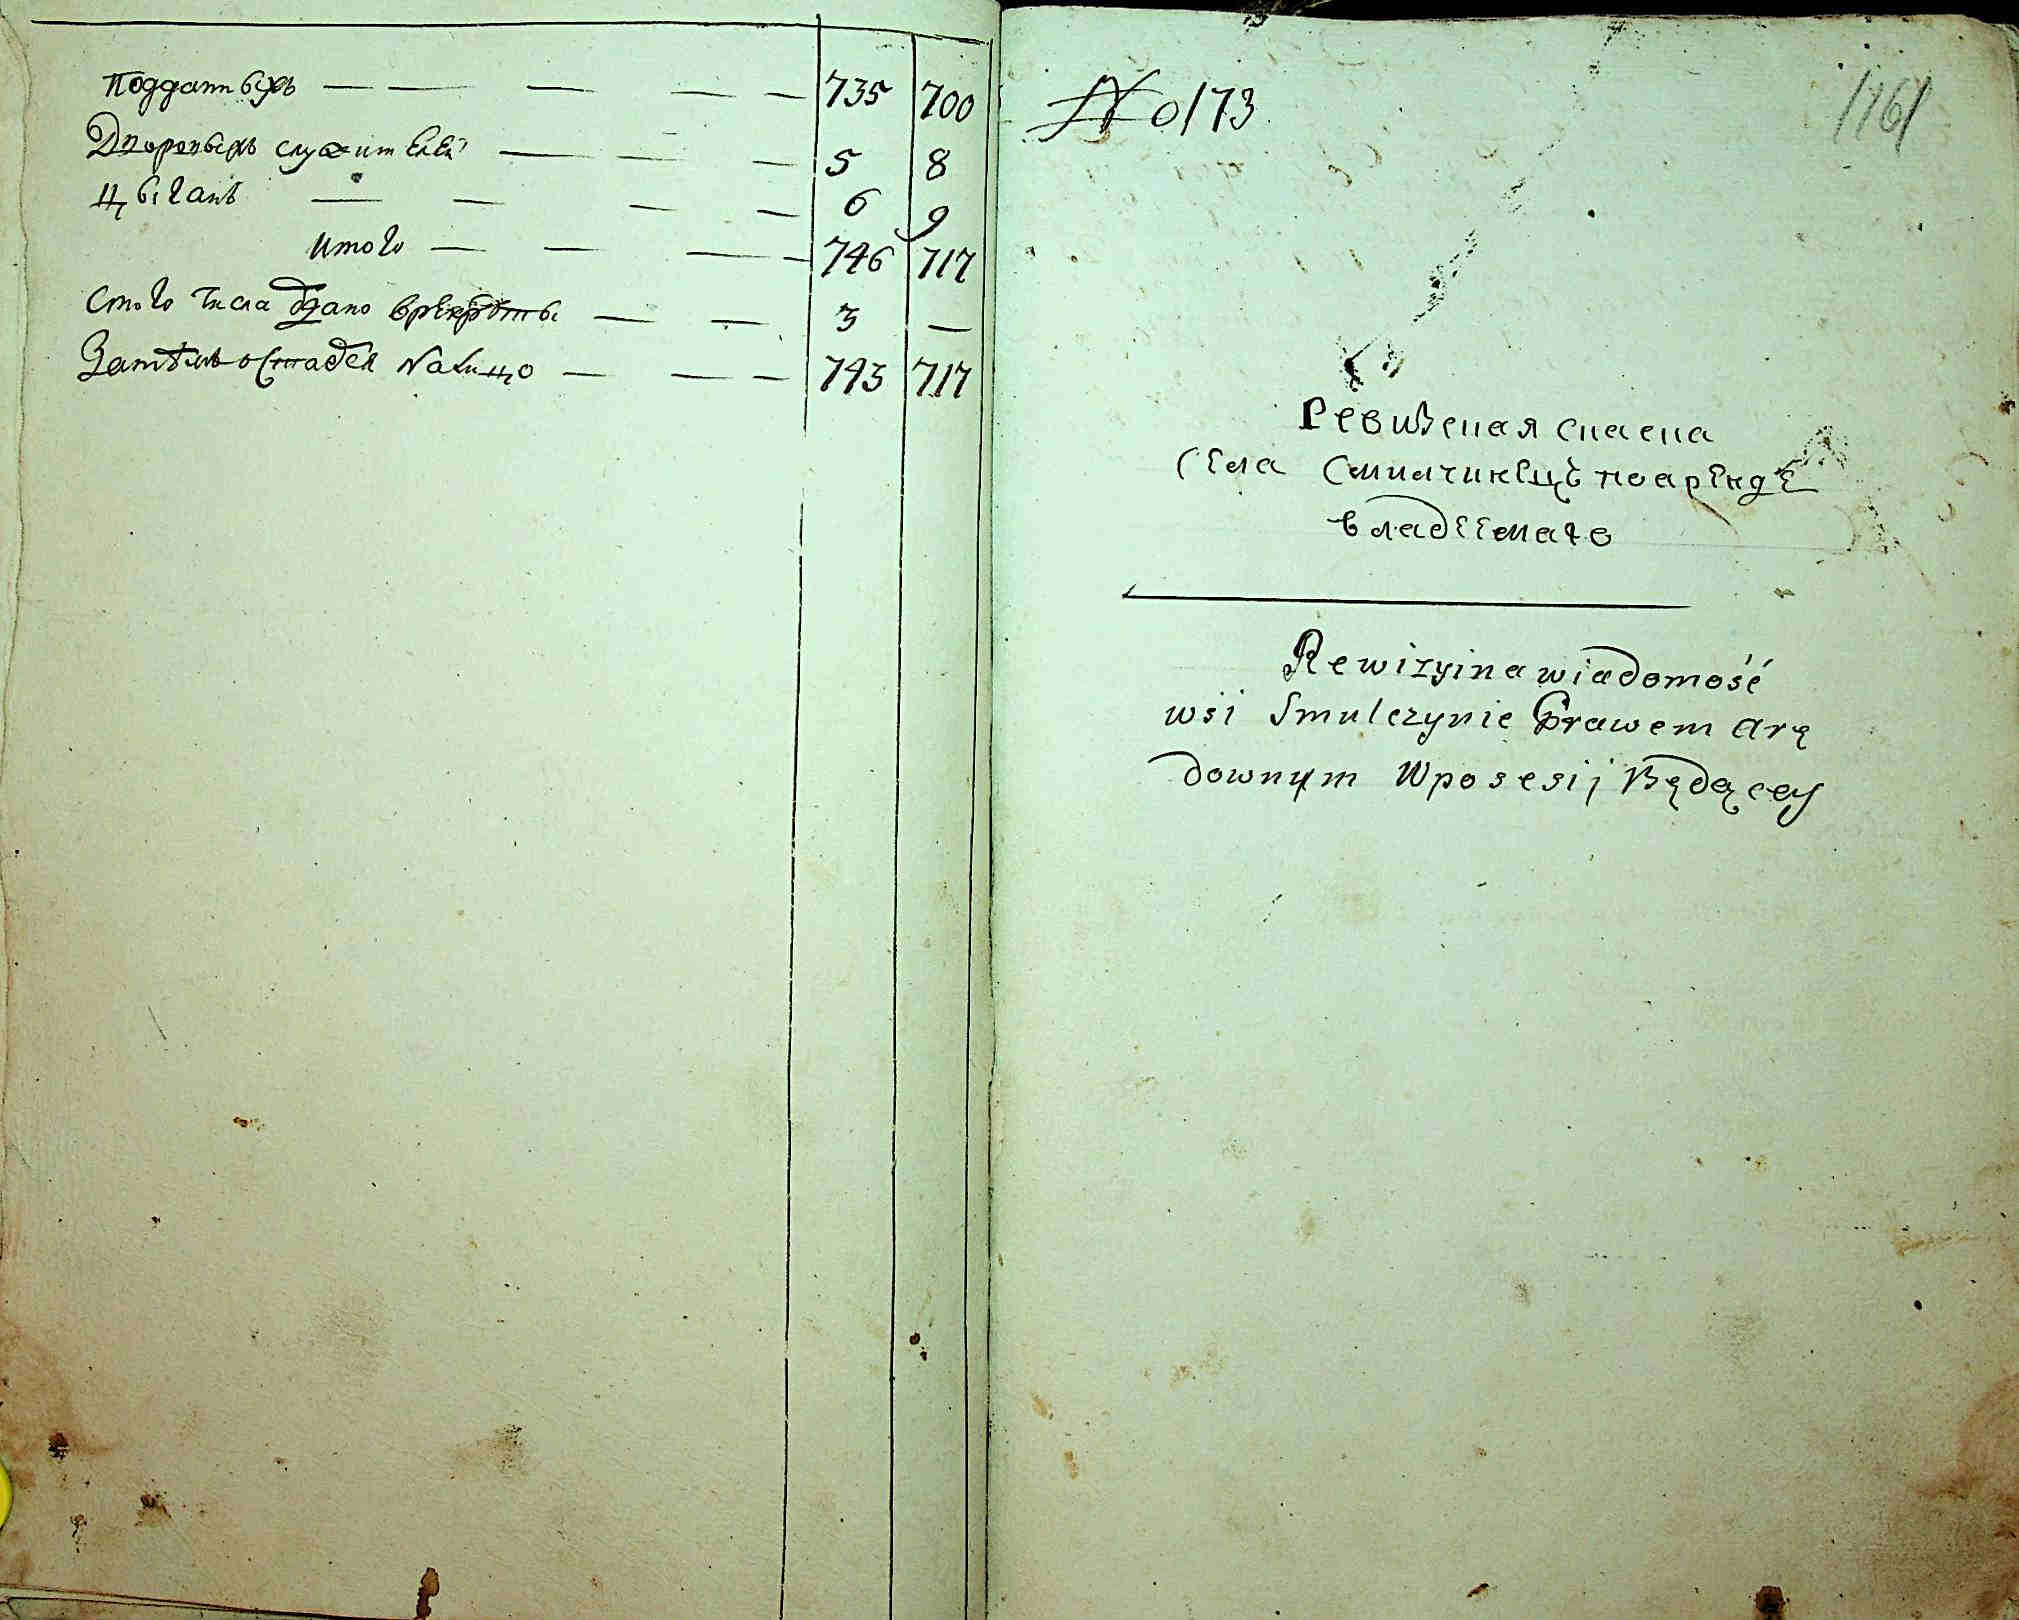 Поддатныхъ — — — — — 735 700
Дворовыхъ служителей — — — 5 8
Цыганъ — — — — 6 9
Итого — — — — 746 717
Стого числа здано врекрѣты — — 3 —
Затѣмъ осталося налицо — — — 743 717
No 173
1161
Ревизская сказка
Села Смилчинецъ поаренде
владеемаго
Rewizyina wiadomość
wsi Smulczynie Prawem Arę
downym Wposesij Będącey